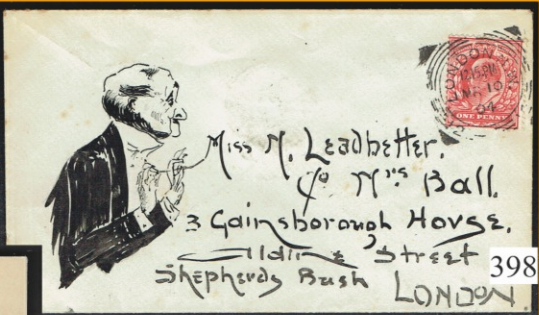 LONDON.W.
12.15 PM
10
04
ONE PENNY
Miss M. Leadbetter.
c/o Mrs Ball.
3 Gainsborough House.
Street
Shepherds Bush
LONDON
398